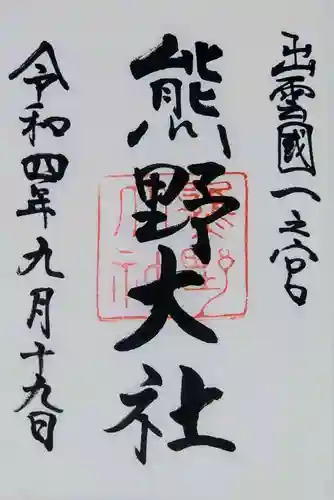 出雲國一之宮
熊野大社
令和四年九月十九日